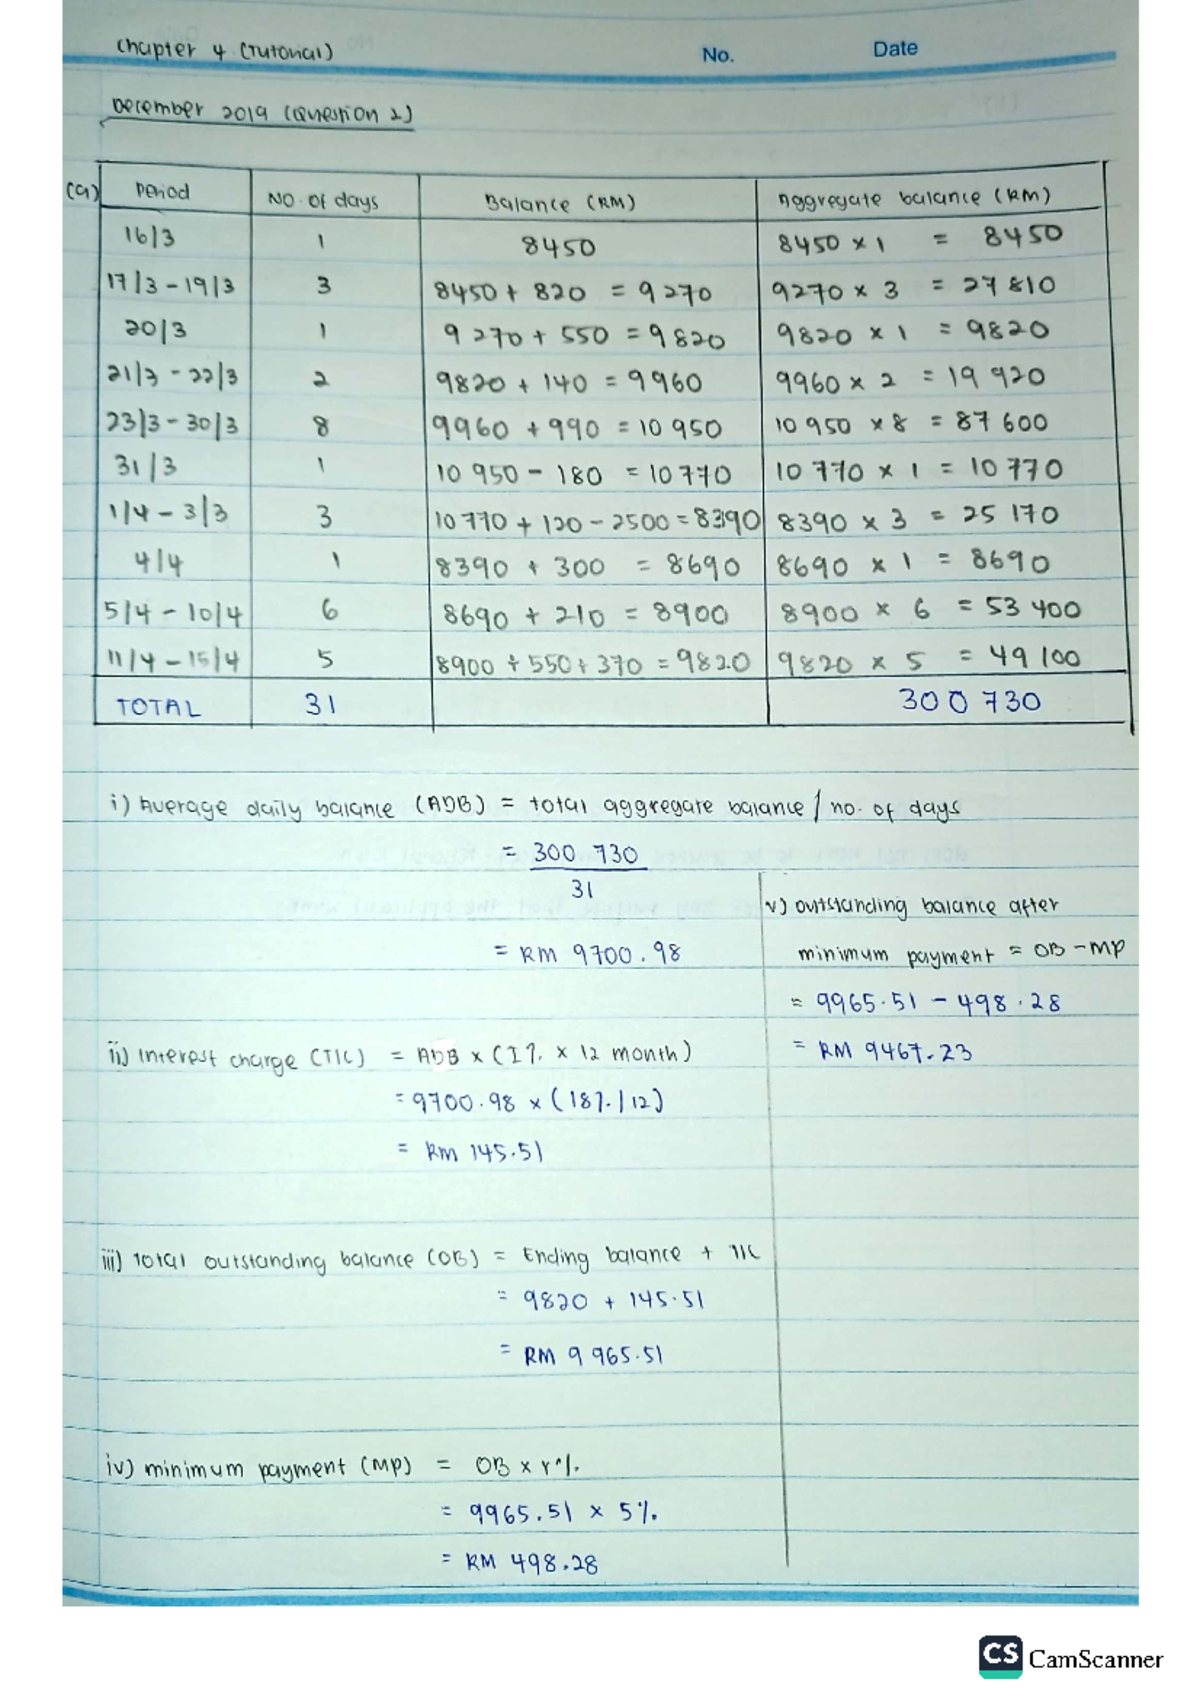 Chapter 4 (Tutorial)
No.
Date
December 2019 (Question 2)
(a) Period No. of days Balance (RM) Aggregate balance (RM)
16/3 1 8450 8450 × 1 = 8450
17/3 - 19/3 3 8450 + 820 = 9270 9270 × 3 = 27 810
20/3 1 9270 + 550 = 9820 9820 × 1 = 9820
21/3 - 22/3 2 9820 + 140 = 9960 9960 × 2 = 19 920
23/3 - 30/3 8 9960 + 990 = 10 950 10 950 × 8 = 87 600
31/3 1 10 950 - 180 = 10 770 10 770 × 1 = 10 770
1/4 - 3/3 3 10 770 + 120 - 2500 = 8390 8390 × 3 = 25 170
4/4 1 8390 + 300 = 8690 8690 × 1 = 8690
5/4 - 10/4 6 8690 + 210 = 8900 8900 × 6 = 53 400
11/4 - 15/4 5 8900 + 550 + 370 = 9820 9820 × 5 = 49 100
TOTAL 31 300 730
i) Average daily balance (ADB) = total aggregate balance / no. of days
= 300 730
31
= RM 9700.98
ii) Interest charge (TIC) = ADB × (I% × 12 month)
= 9700.98 × (18% / 12)
= RM 145.51
iii) Total outstanding balance (OB) = Ending balance + TIC
= 9820 + 145.51
= RM 9 965.51
iv) minimum payment (MP) = OB × r%
= 9965.51 × 5%
= RM 498.28
v) outstanding balance after
minimum payment = OB - MP
= 9965.51 - 498.28
= RM 9467.23
CS CamScanner